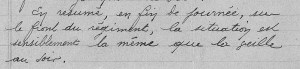 En résumé, en fin de journée, sur
le front du régiment, la situation est
sensiblement la même que la veille
au soir.